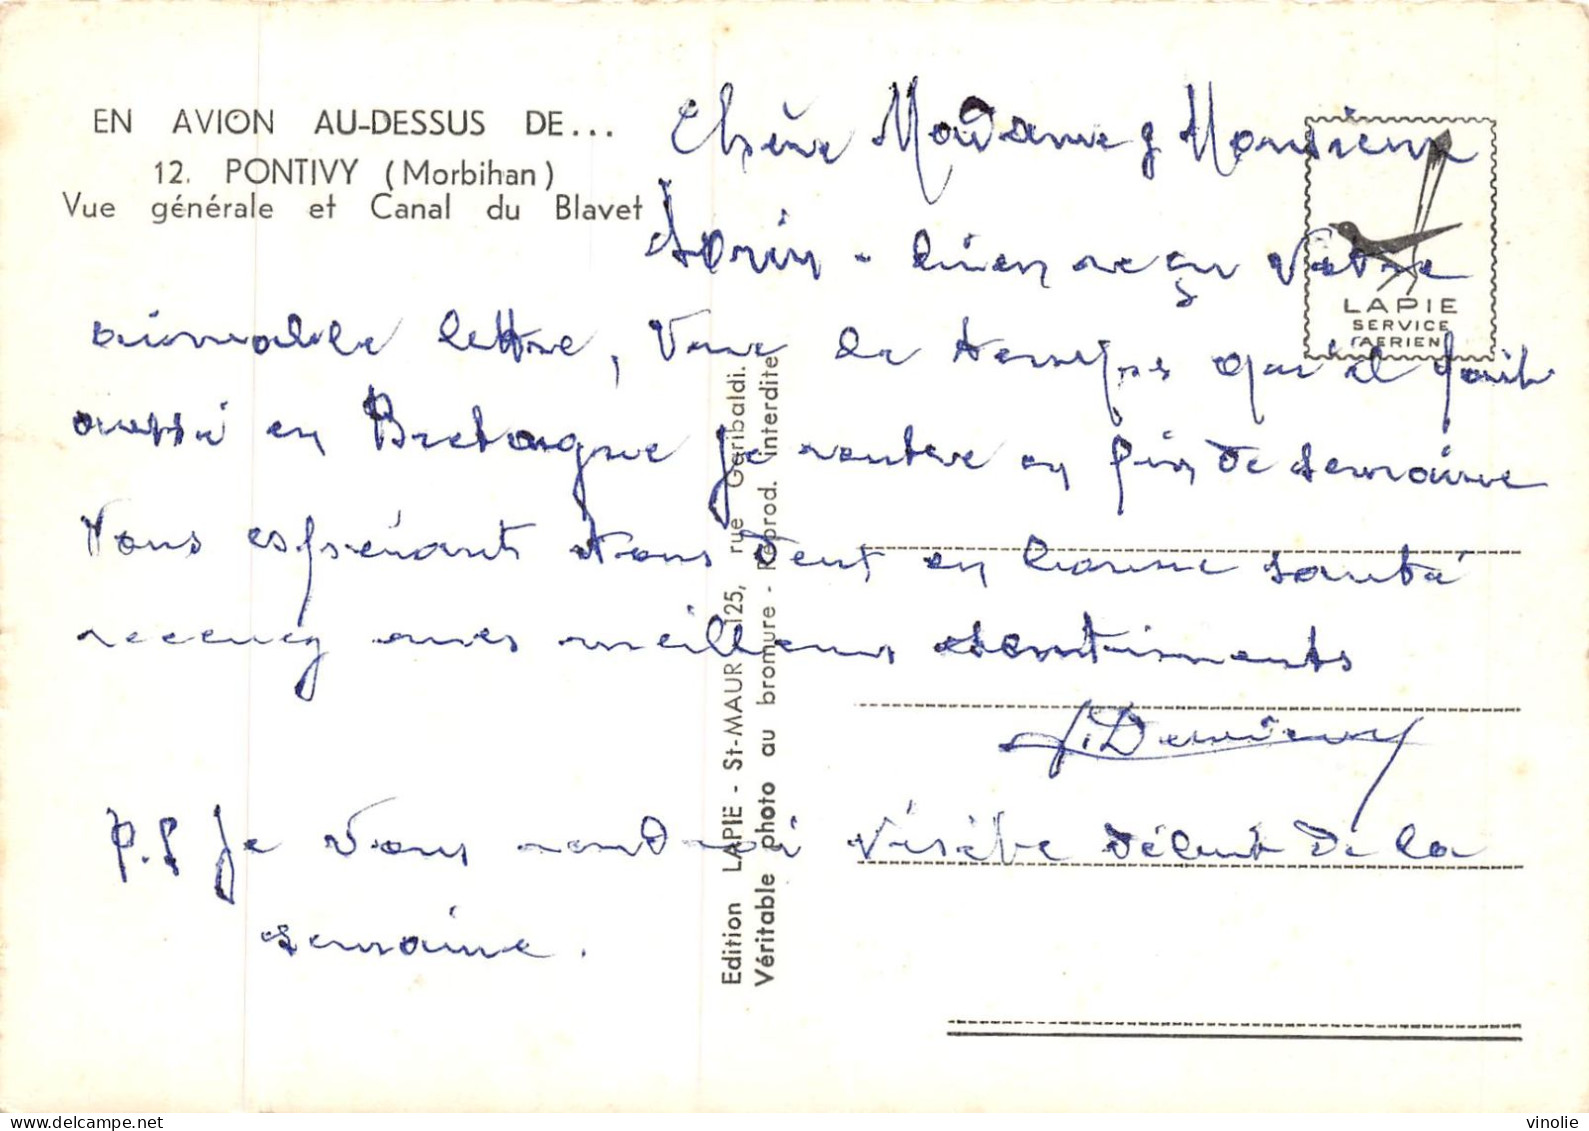 EN AVION AU-DESSUS DE...
12. PONTIVY (Morbihan)
Vue générale et Canal du Blavet
Chère Madame & Monsieur
Sorin - bien reçu Votre
aimable lettre, Vue le temps qu'il fait
aussi en Bretagne je rentre en fin de semaine
Vous espérant tous deux en bonne santé
recevez mes meilleurs sentiments
P.S Je Vous rendrai Visite début de la
semaine.
LAPIE
SERVICE
AERIEN
Edition LAPIE - St-MAUR 125, rue Garibaldi.
Véritable photo au bromure - Reprod. interdite
vinolie